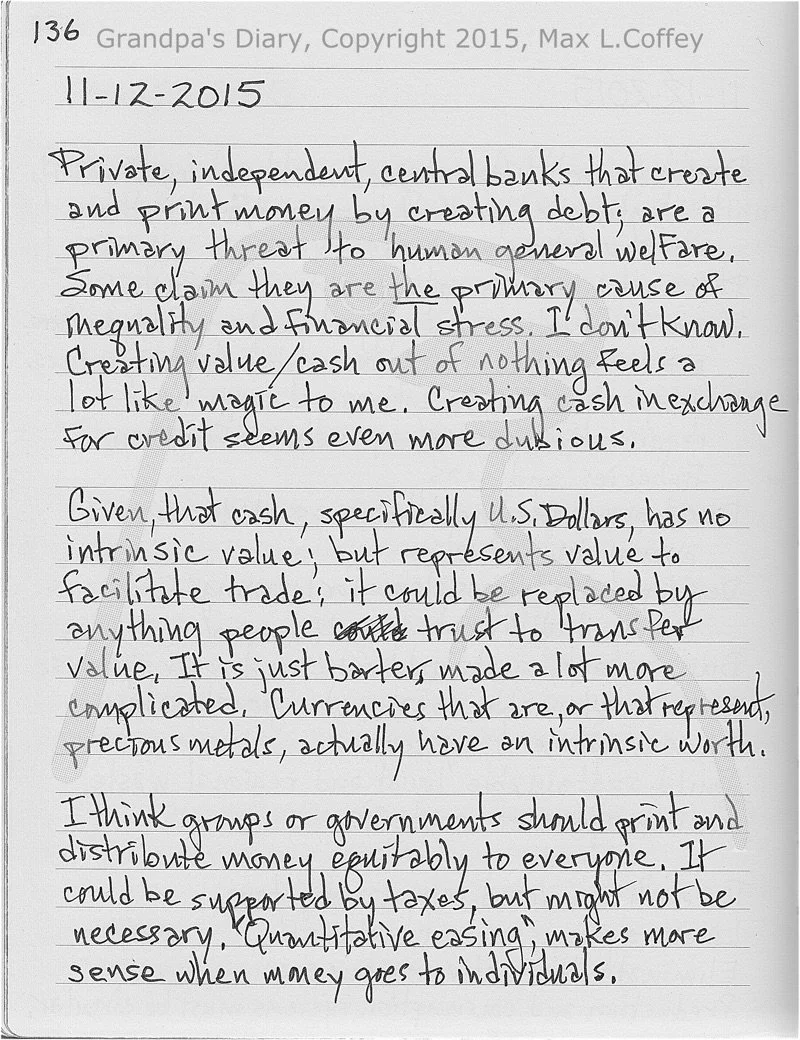 136 Grandpa's Diary, Copyright 2015, Max L.Coffey
11-12-2015
Private, independent, central banks that create
and print money by creating debt; are a
primary threat to human general welfare.
Some claim they are the primary cause of
inequality and financial stress. I don't know.
Creating value/cash out of nothing feels a
lot like magic to me. Creating cash in exchange
for credit seems even more dubious.
Given, that cash, specifically U.S. Dollars, has no
intrinsic value; but represents value to
facilitate trade; it could be replaced by
anything people trust to transfer
value. It is just barter, made a lot more
complicated. Currencies that are, or that represent,
precious metals, actually have an intrinsic worth.
I think groups or governments should print and
distribute money equitably to everyone. It
could be supported by taxes, but might not be
necessary. "Quantitative easing", makes more
sense when money goes to individuals.